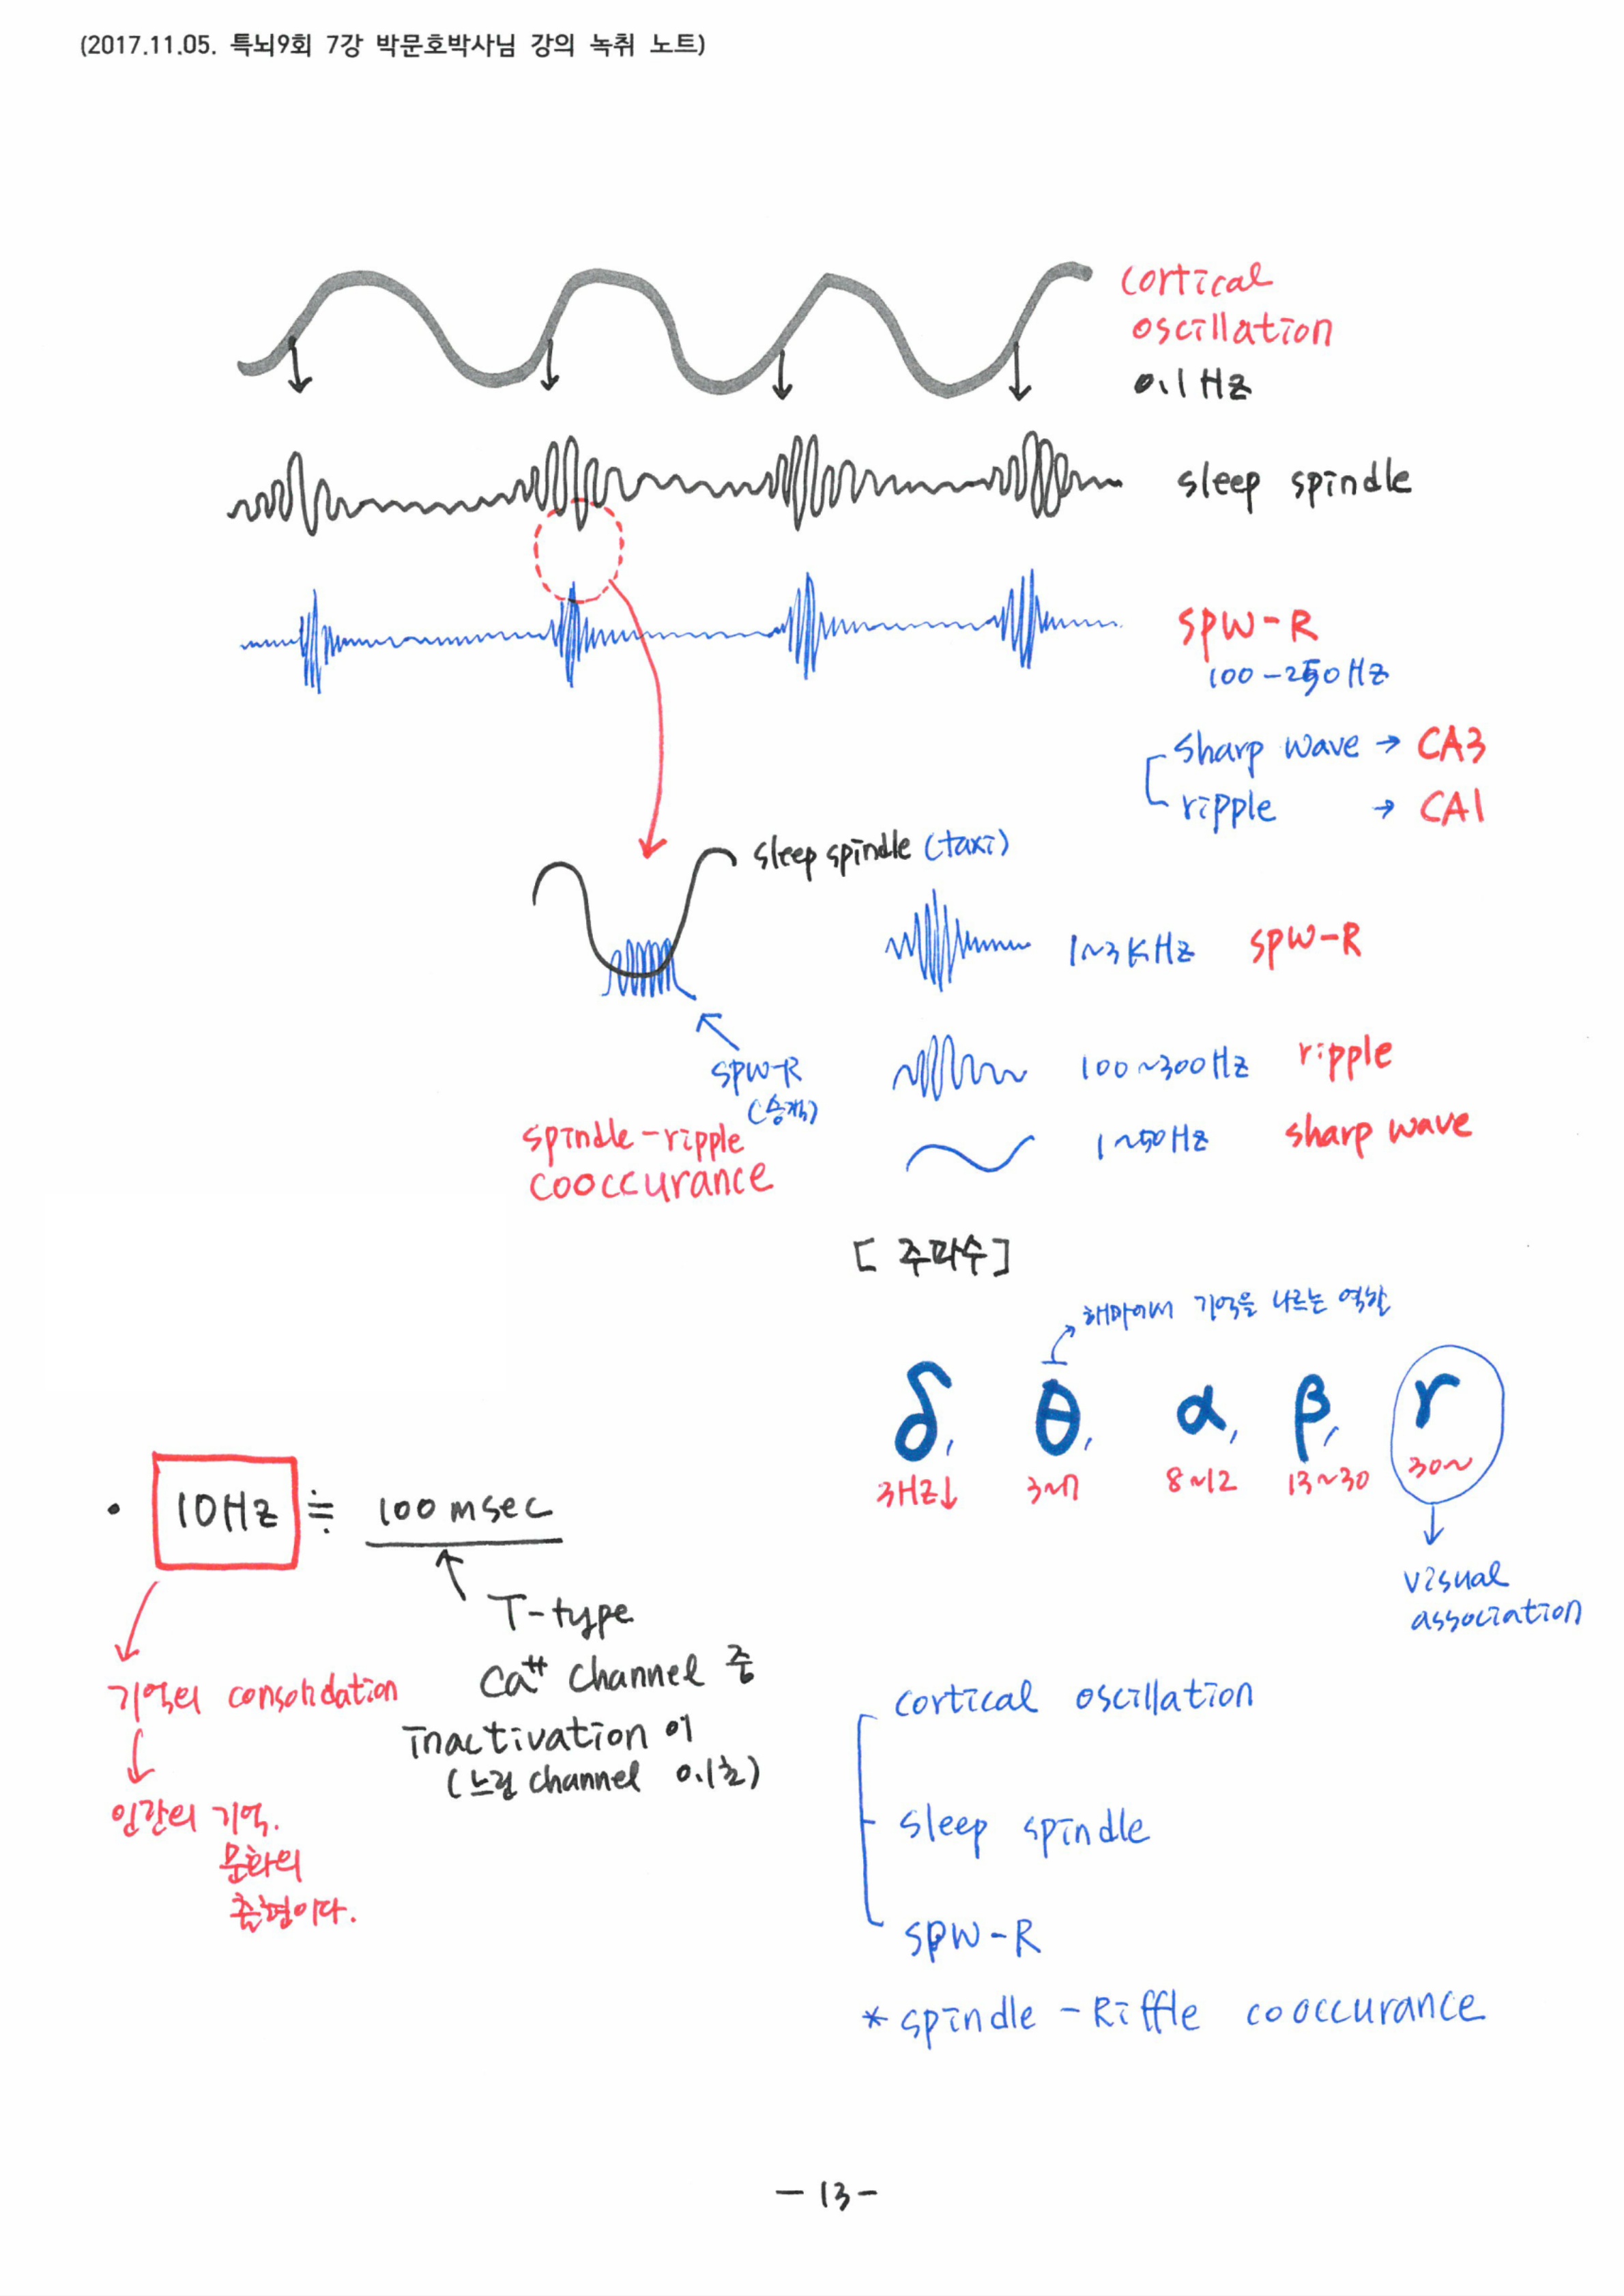 (2017.11.05. 특뇌9회 7강 박문호박사님 강의 녹취 노트)
cortical
oscillation
0.1Hz
sleep spindle
SPW-R
100-250Hz
sharp wave → CA3
ripple → CA1
sleep spindle (taxi)
1~3KHz SPW-R
SPW-R
(승객)
100~300Hz ripple
spindle-ripple
cooccurance
1~50Hz sharp wave
[주파수]
해마에서 기억을 나르는 역할
δ, θ, α, β, γ
3HZ↓ 3~7 8~12 13~30 30~
visual
association
· 10Hz ≒ 100msec
T-type
Ca++ channel 중
inactivation 이
(느린 channel 0.1초)
기억의 consolidation
인간의 기억.
문화의
출현이다.
cortical oscillation
sleep spindle
SPW-R
* spindle - Riffle cooccurance
- 13 -